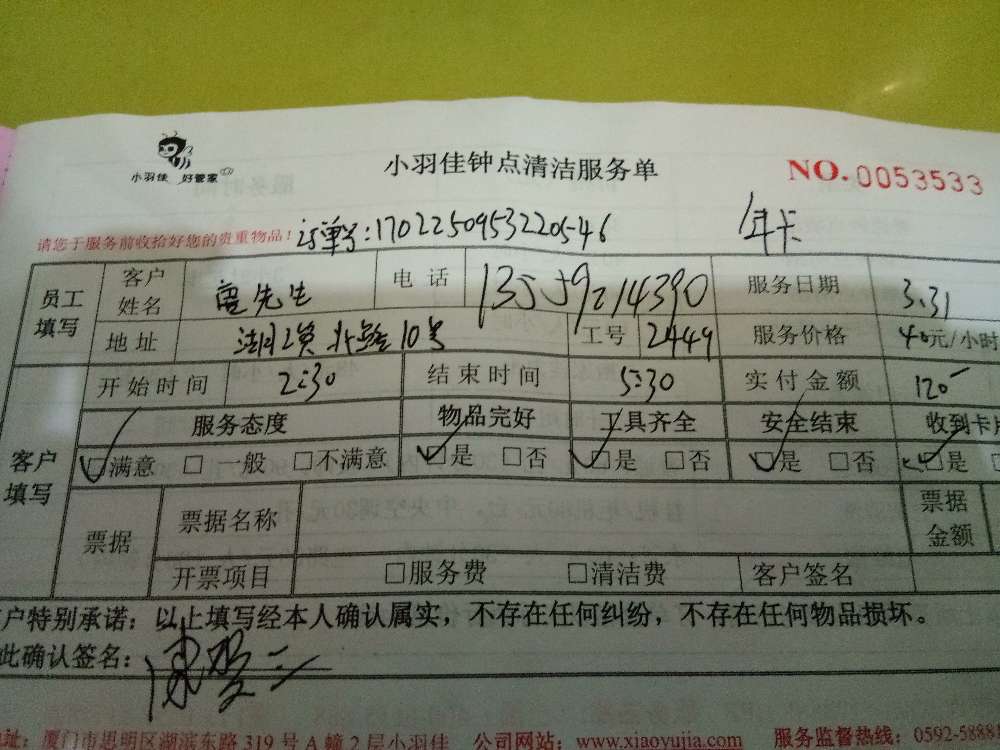 小羽佳 好管家
小羽佳钟点清洁服务单
NO.0053533
请您于服务前收拾好您的贵重物品!
订单号:1702250953220546
年卡
员工填写
客户姓名
曾先生
电话
13559214390
服务日期
3.31
地址
北路10号
工号
2449
服务价格
40元/小时
客户填写
开始时间
2:30
结束时间
5:30
实付金额
120
服务态度
物品完好
工具齐全
安全结束
收到卡
☑满意 □一般 □不满意
☑是 □否
☑是 □否
☑是 □否
☑是
票据
票据名称
票据金额
开票项目
□服务费 □清洁费
客户签名
户特别承诺:以上填写经本人确认属实,不存在任何纠纷,不存在任何物品损坏。
此确认签名:
址:厦门市思明区湖滨东路 319 号 A 幢 2 层小羽佳 公司网站:www.xiaoyujia.com 服务监督热线:0592-5888